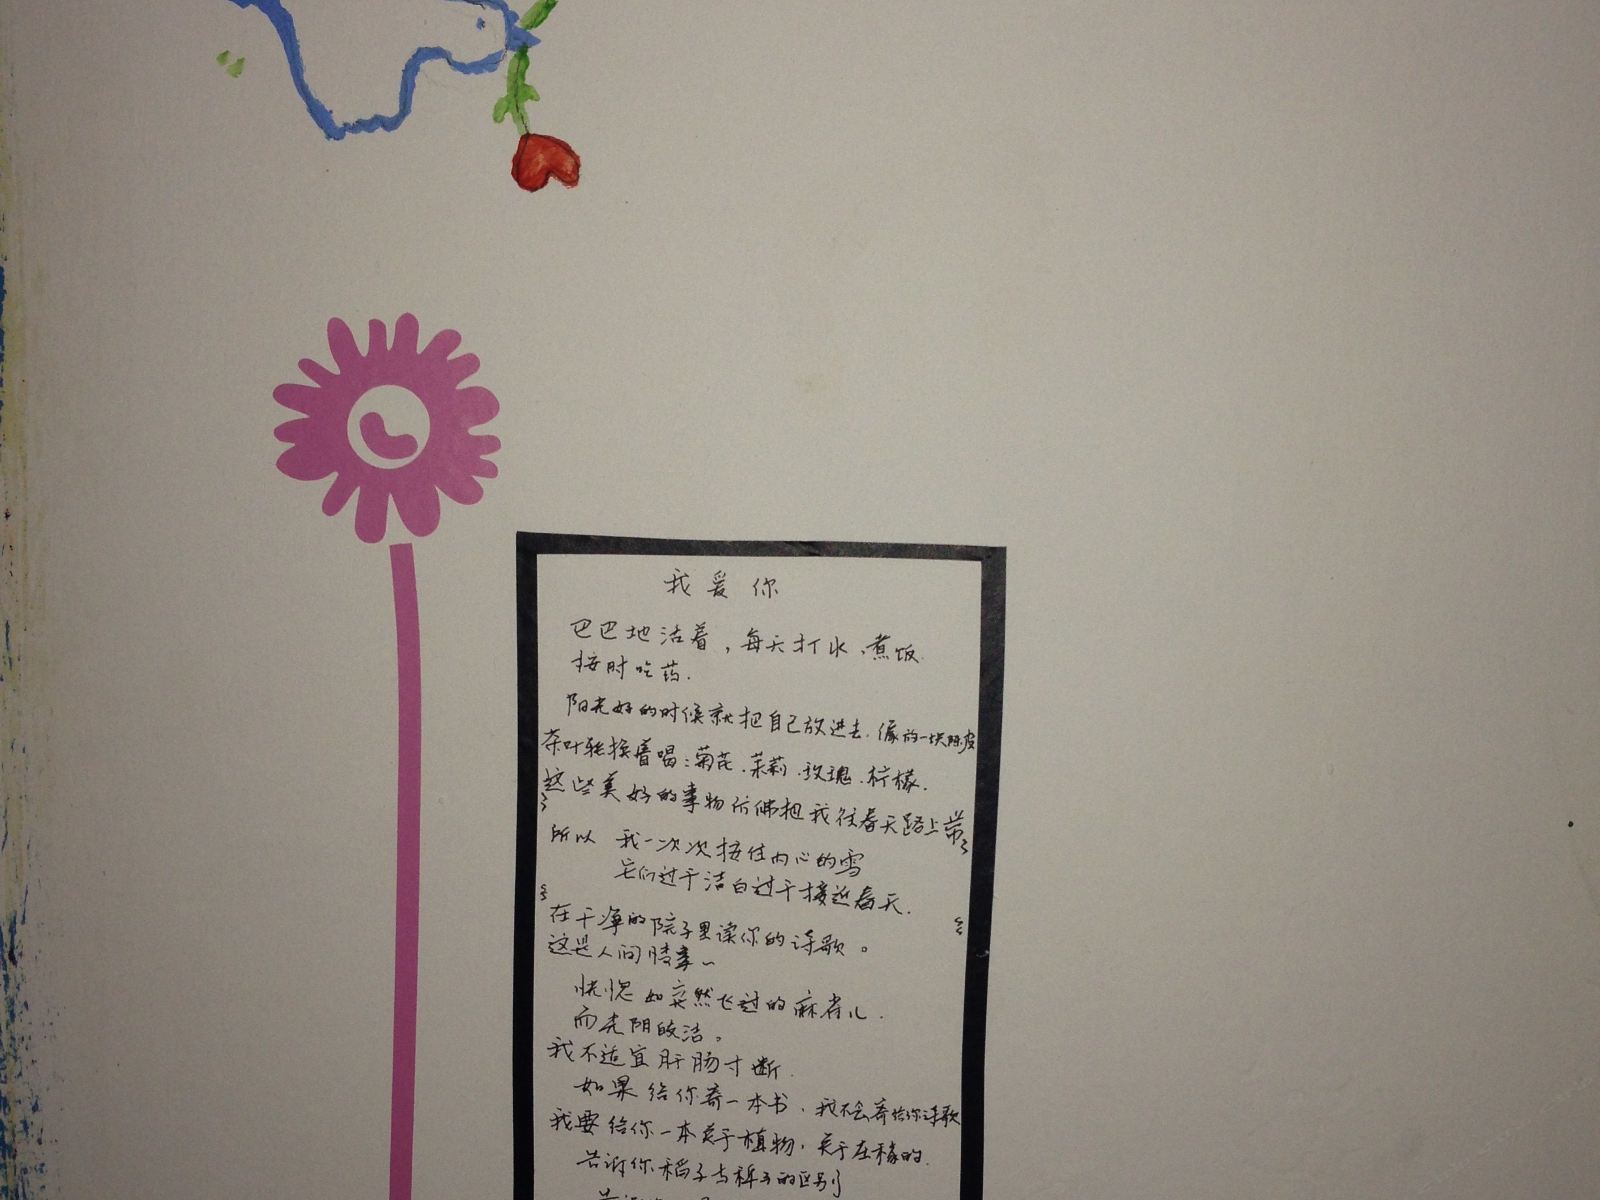 我爱你
巴巴地活着,每天打水,煮饭
按时吃药.
阳光好的时候就把自己放进去.像放一块陈皮
茶叶轮换着喝:菊花.茉莉.玫瑰.柠檬.
这些美好的事物仿佛把我往春天路上带
所以 我一次次按住内心的雪
它们过于洁白过于接近春天.
在干净的院子里读你的诗歌。
这是人间情事
恍惚如突然飞过的麻雀儿.
而光阴皎洁。
我不适宜肝肠寸断.
如果给你寄一本书.我不会寄给你诗歌
我要给你一本关于植物.关于庄稼的.
告诉你稻子与稗子的区别